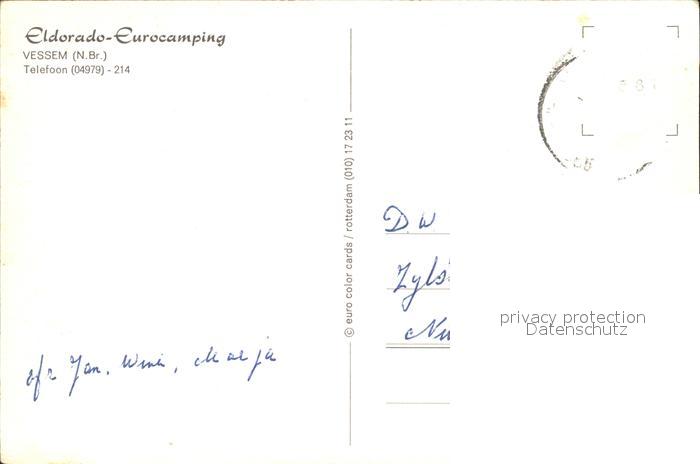 Eldorado-Eurocamping
VESSEM (N.Br.)
Telefoon (04979) - 214
© euro color cards / rotterdam (010) 17 23 11
D. W
Zyls
Nu
privacy protection
Datenschutz
afz Jan, Wimi, Marja